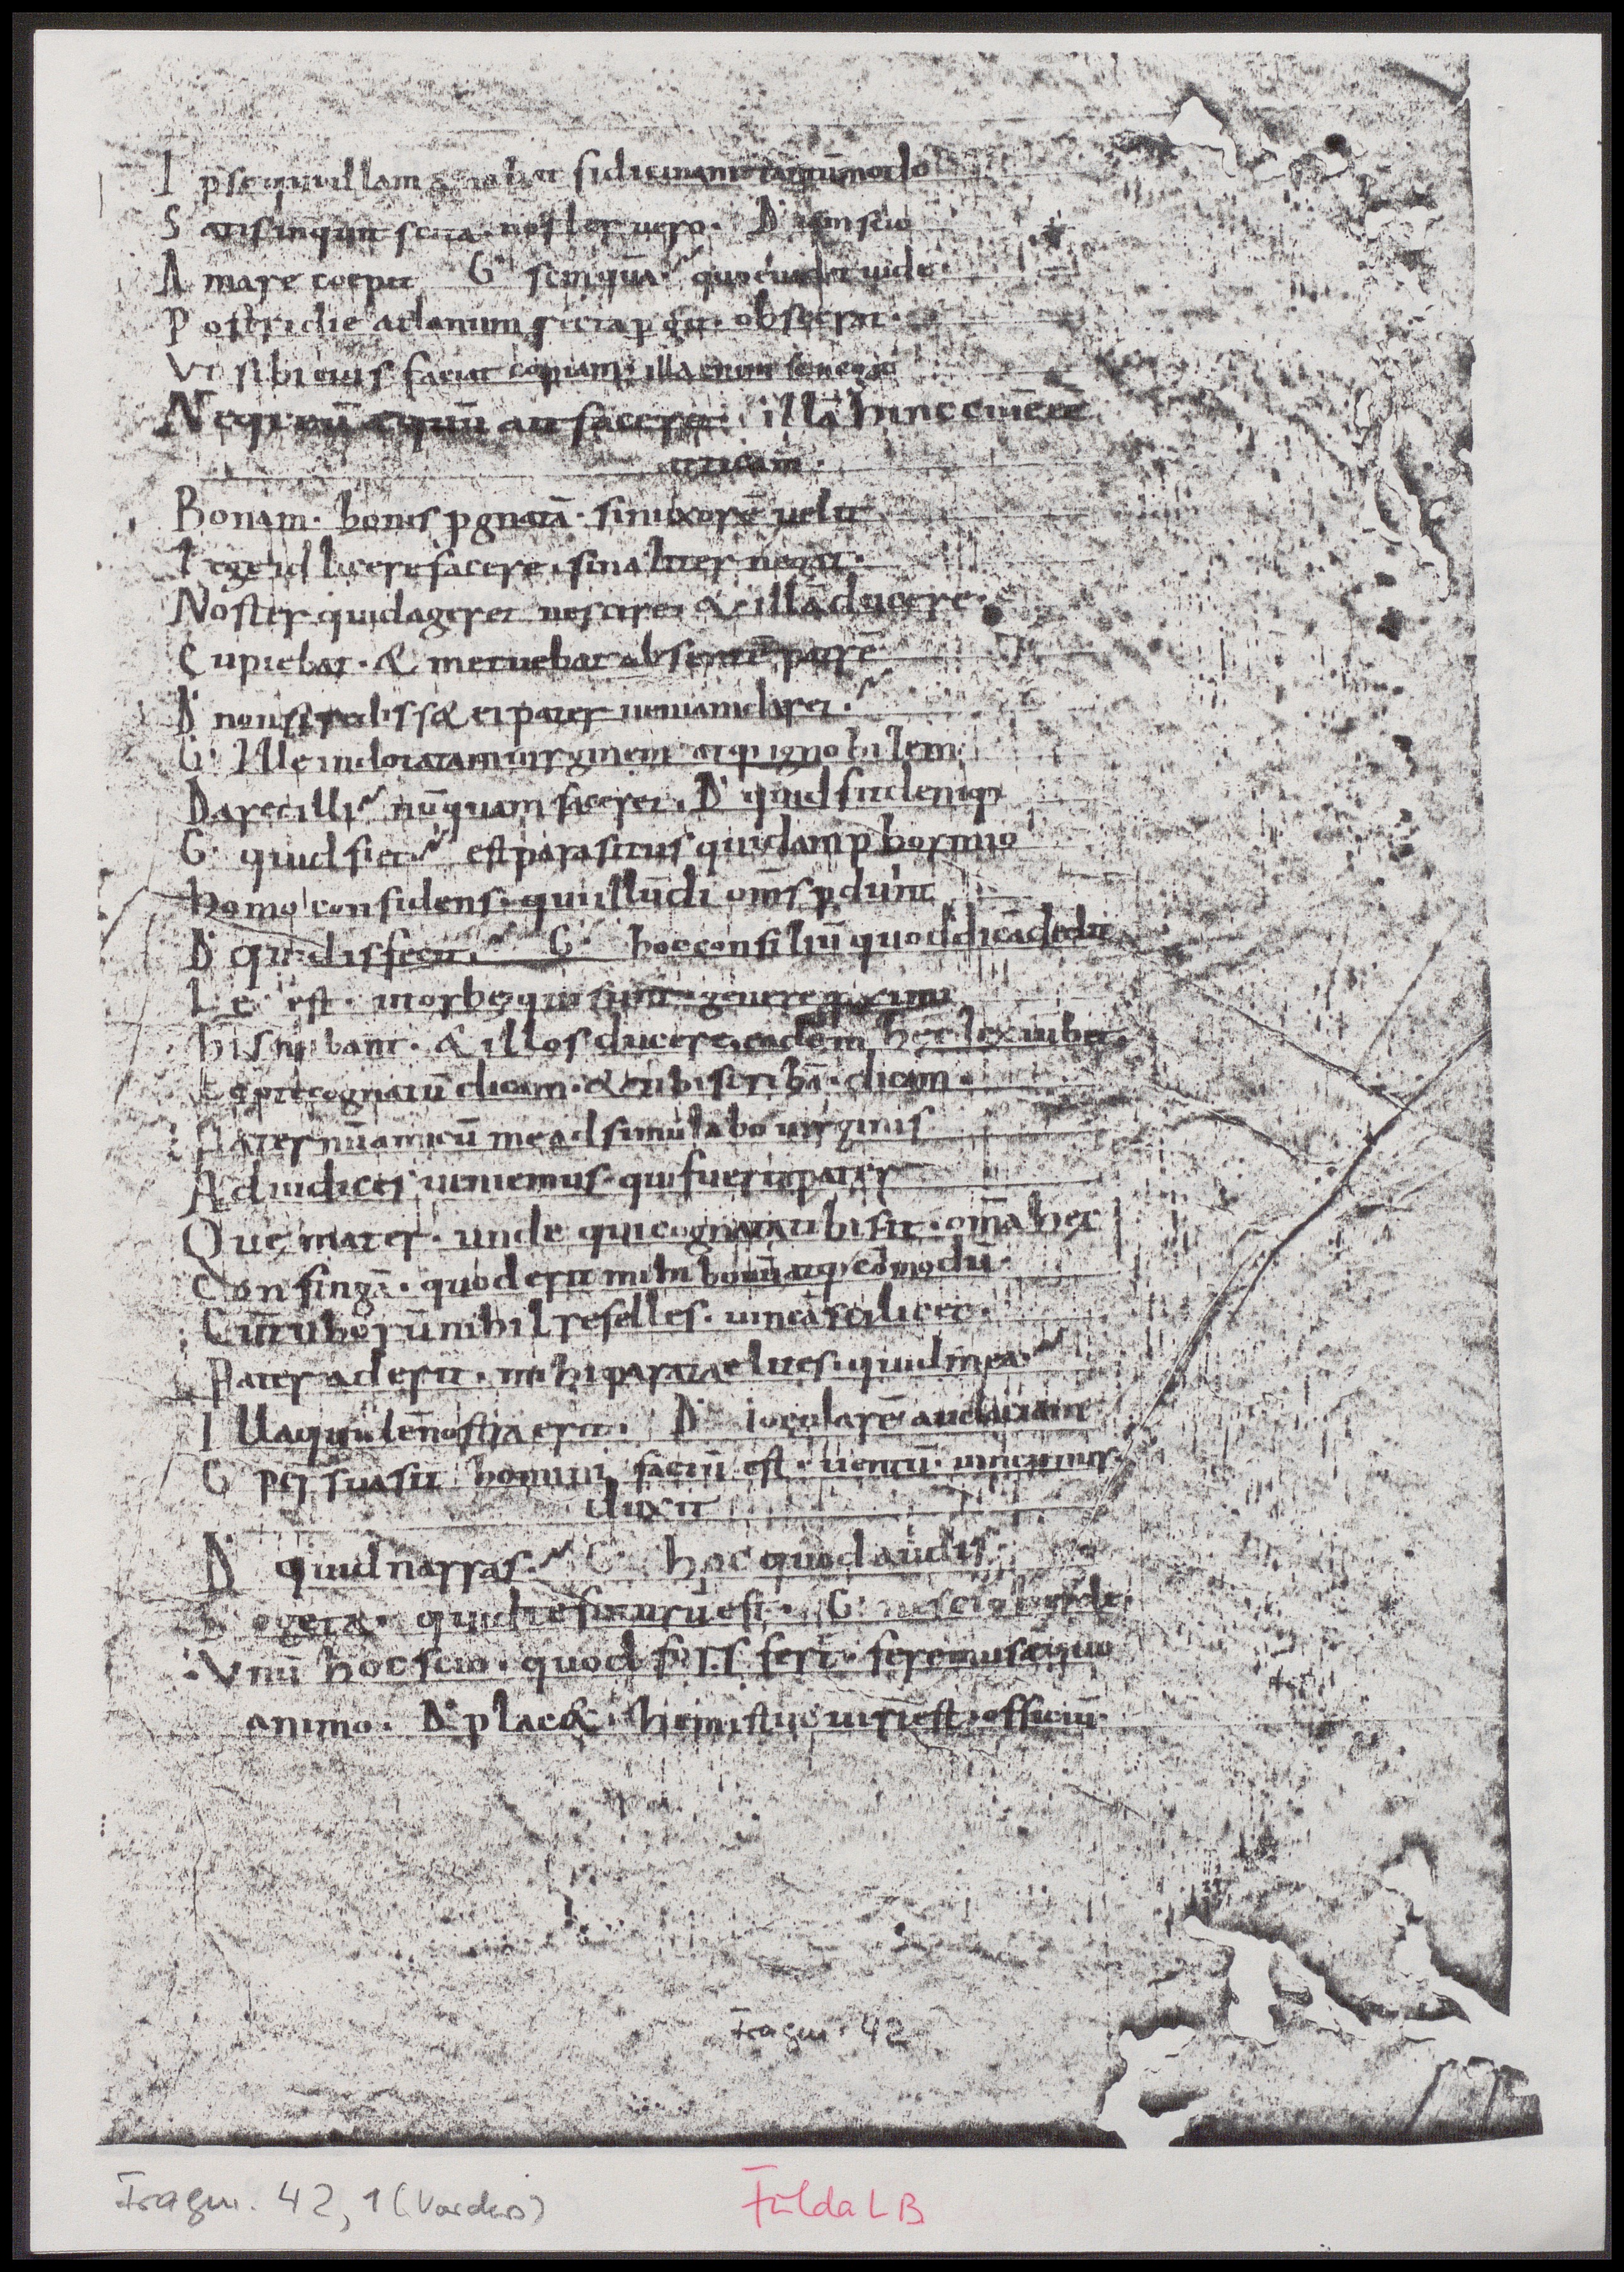 I psequi illam norat fidicinam tantūmodo
S atisinquit scita · noster uero · D· iam scio
A mare coepit G· scinquā quoeuadat uide ·
P ostridie adanum recta pgit · obsecrat ·
Vt sibi eius faciat copiam · illa enim se negat
Neq; eū aequū ait facere illā hinc ciuē eē
atticam ·
Bonam · bonis pgnatā · siuuxorē uelit
Lege id licere facere · sinaliter negat ·
Noster quidageret nescire · & illā ducere ·
Cupiebat · & metuebat absentē patrē
D· nonsiredisset ei pater ueniamdaret ·
G· Ille indotatamuirginem atq; ignobilem
Daret illi nūquam faceret · D· quid fit deniq;
G· quid fiat est parasitus quidam phormio
homo confidens · qui illūdi oms pdunt
D· quidisfecit · G· hoc consiliū quoddicā dedit
Lex est · ut orbe qui sunt genere pximi
his nubant · & illos ducere eadem hec lex iubet
Tepte cognatū dicam · & tibi scribā · dicam ·
Paternū amicū me adsimulabo uirginis
Ad iudices ueniemus · qui fuerit pater
Que mater · unde qui cognata tibi sit · oma hec
Confingā · quod erit mihi bonū atq; cōmodū ·
Cū tu horū nihil refelles · uincā scilicet ·
Pater aderit · mihi paratae lites · quid mea ·
I lla quidē nostra erit · D· iocularē audaciam
G persuasit homini factū est · uentū · uincimur ·
duxit
D· quid narras · G· hoc quod audis
O geta · quid te futurū est · G· nescio hercle ·
Vnū hoc scio · quod fors feret · feremus aequo
animo · D· placet · hem istuc uiri est · officiū ·
Fragm. 42
Fragm. 42, 1 (Vorders)
Fulda LB